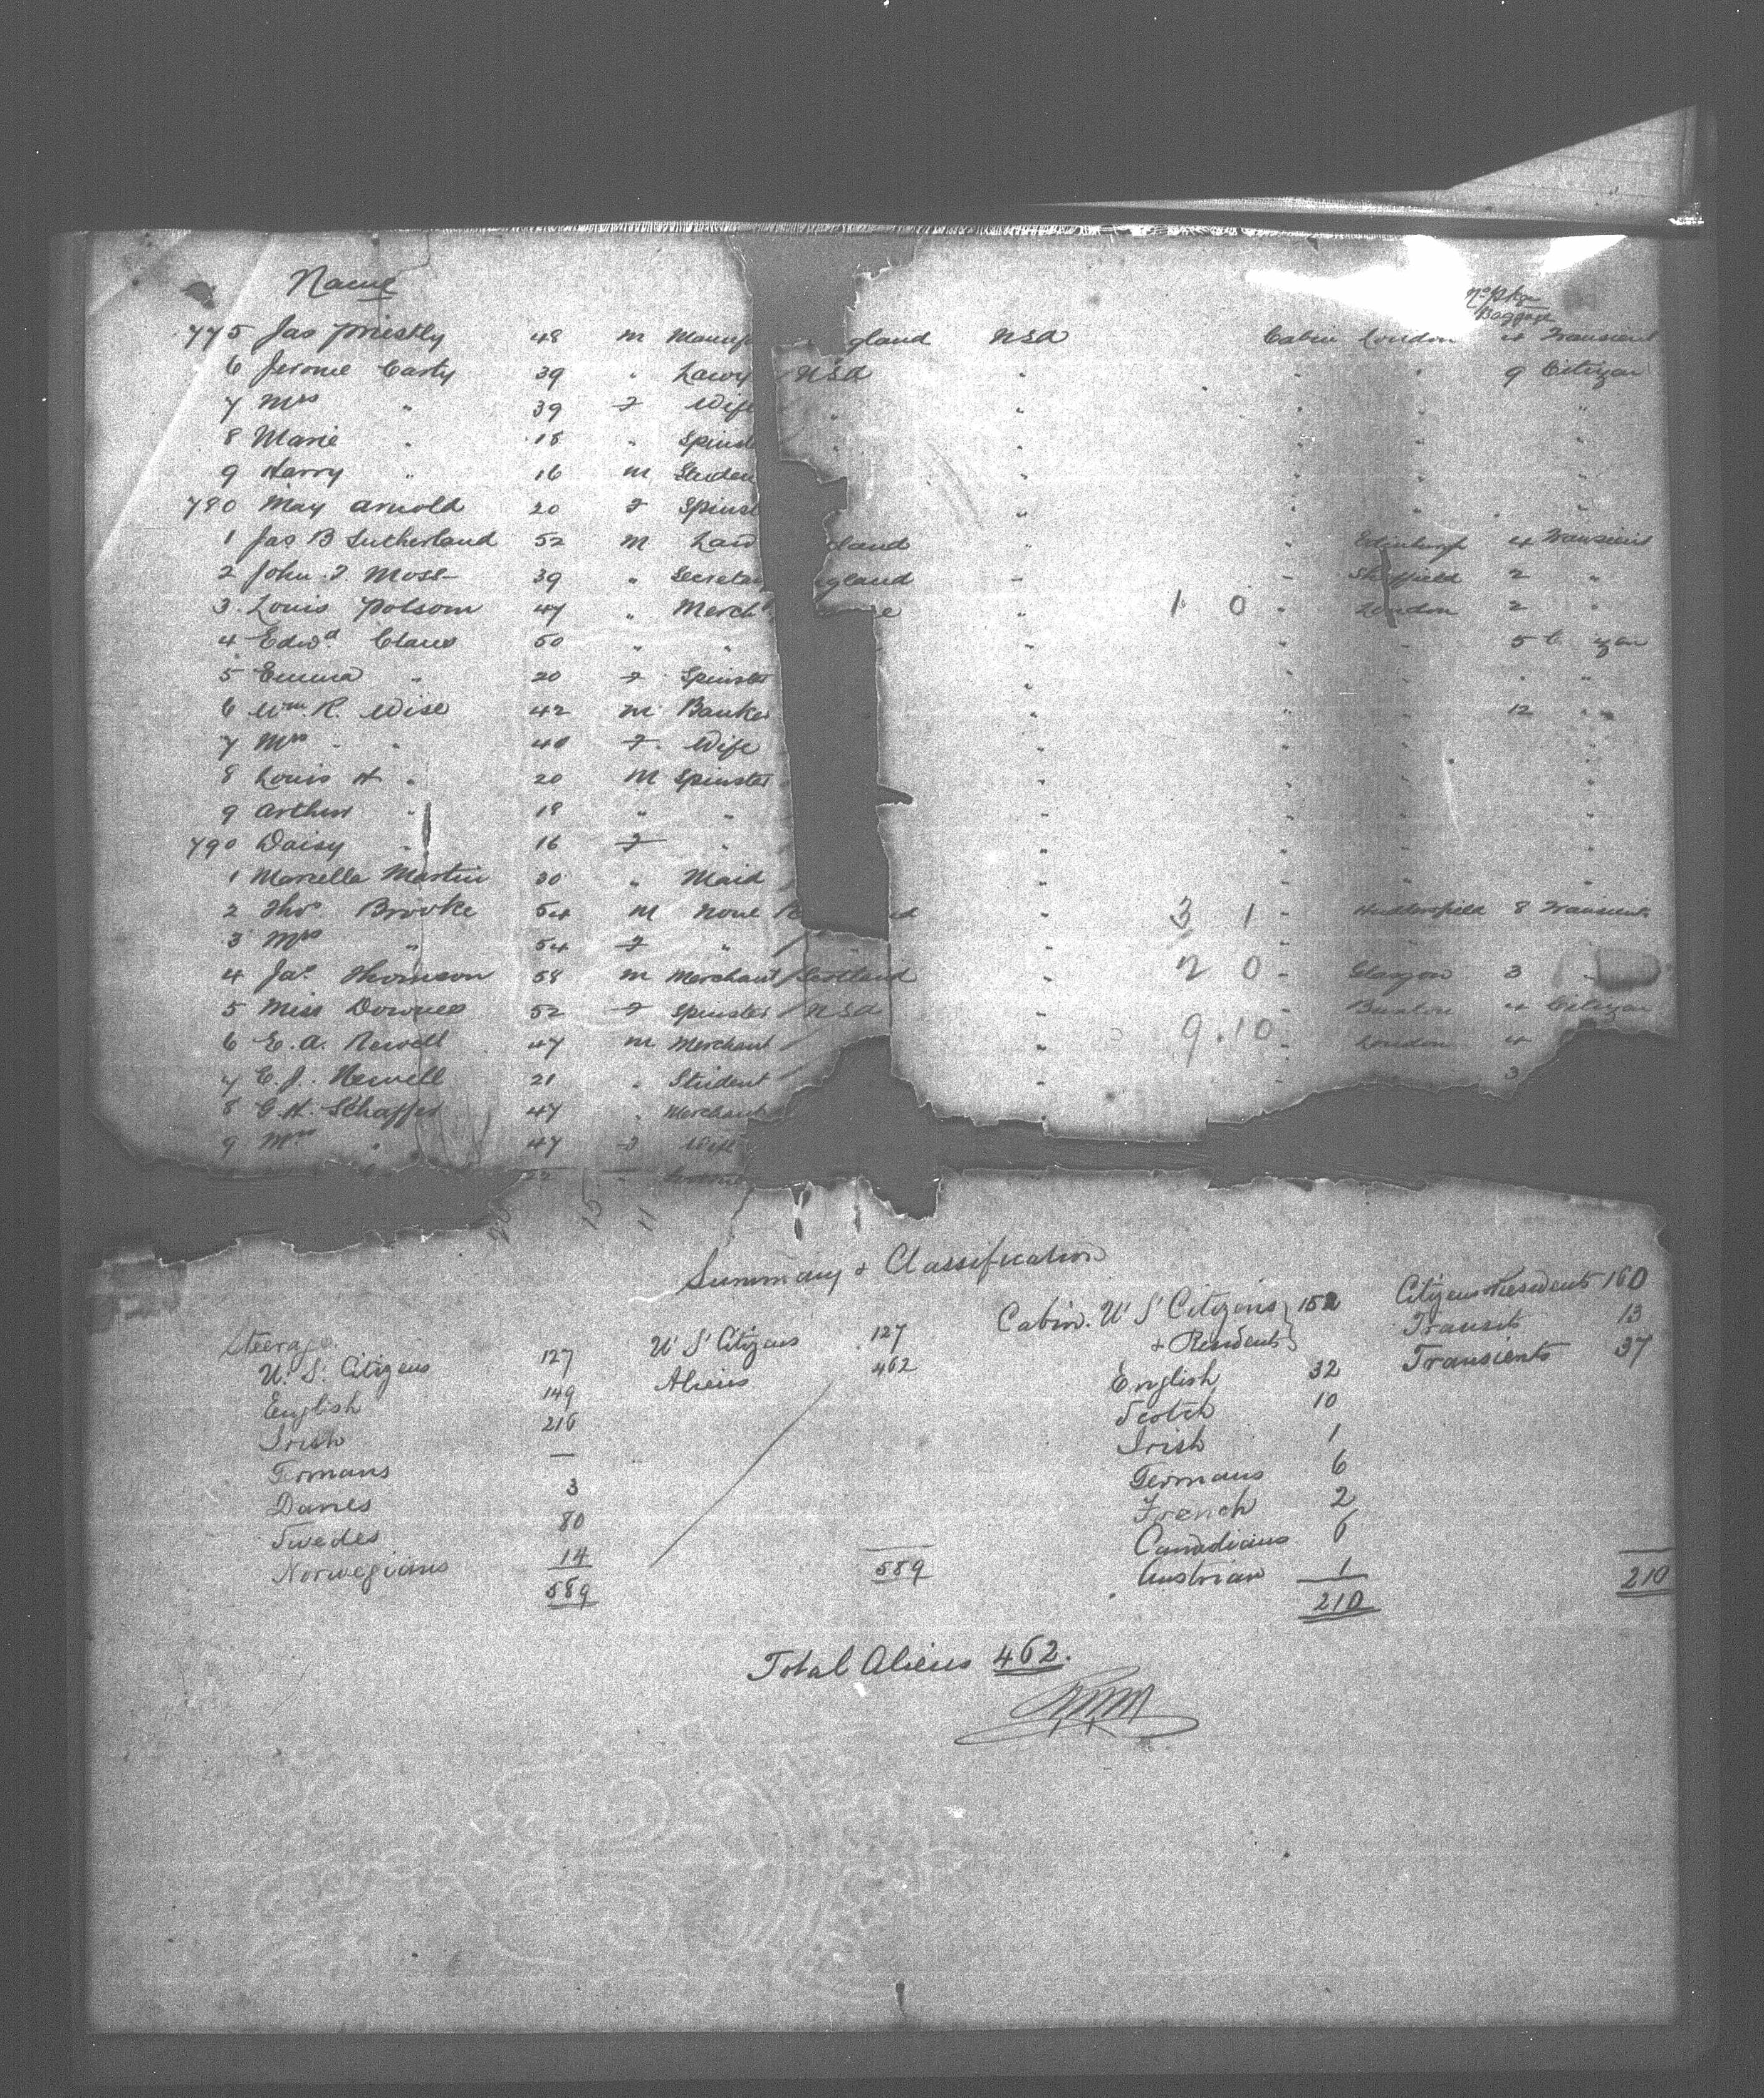 Name
No Pkgs
Baggage
775 Jas Priestly 48 m Manuf gland USA Cabin London 4 Transient
6 Jerome Carty 39 " Lawy USA " " " " 9 Citizen
7 Mrs " 39 F Wife " " " " "
8 Marie " 18 " Spinst " " " " "
9 Harry " 16 m Studen " " " "
780 May Arnold 20 F Spinst " " " "
1 Jas B Sutherland 52 m Law land " Edinburgh 4 Transient
2 John F Moss 39 " Secretar gland " " Sheffield 2 "
3 Louis Polsom 47 " Merch e " 1 0 " London 2 "
4 Edwd Claus 50 " " " " " 5 C zen
5 Emma " 20 F Spinster " " " " "
6 Wm. R. Wise 42 m Banker " " " 12 "
7 Mrs " 40 F Wife " " " "
8 Louis H " 20 M Spinster " " " "
9 Arthur " 18 " " " " " "
790 Daisy " 16 F " " " " "
1 Marcella Martin 30 " Maid " " " "
2 Thos. Brooke 54 m None d " 3 1 " Huddersfield 8 Transient
3 Mrs " 54 F " " " " "
4 Jas. Thomson 58 m Merchant Scotland " 2 0 " Glasgow 3 "
5 Miss Downes 52 F Spinster USA " " 4 Citizen
6 E. A. Newell 47 m Merchant " 9.10 " London 4
7 C. J. Newell 21 " Student " " 3
8 G. H. Schaffer 47 " Merchant
9 Mrs " 47 F Wife
22 "
15 11
Summary & Classification
Steerage. U S Citizens 127 Cabin. U S Citizens } 152 Citizens & Residents 160
U. S. Citizens 127 Aliens 462 & Residents } Transits 13
English 149 English 32 Transients 37
Irish 216 Scotch 10
Germans — Irish 1
Danes 3 Germans 6
Swedes 80 French 2
Norwegians 14 Canadians 6
589 589 Austrian 1 210
210
Total Aliens 462.